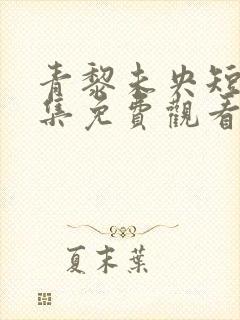 青黎未央短
集免費觀看
夏末葉